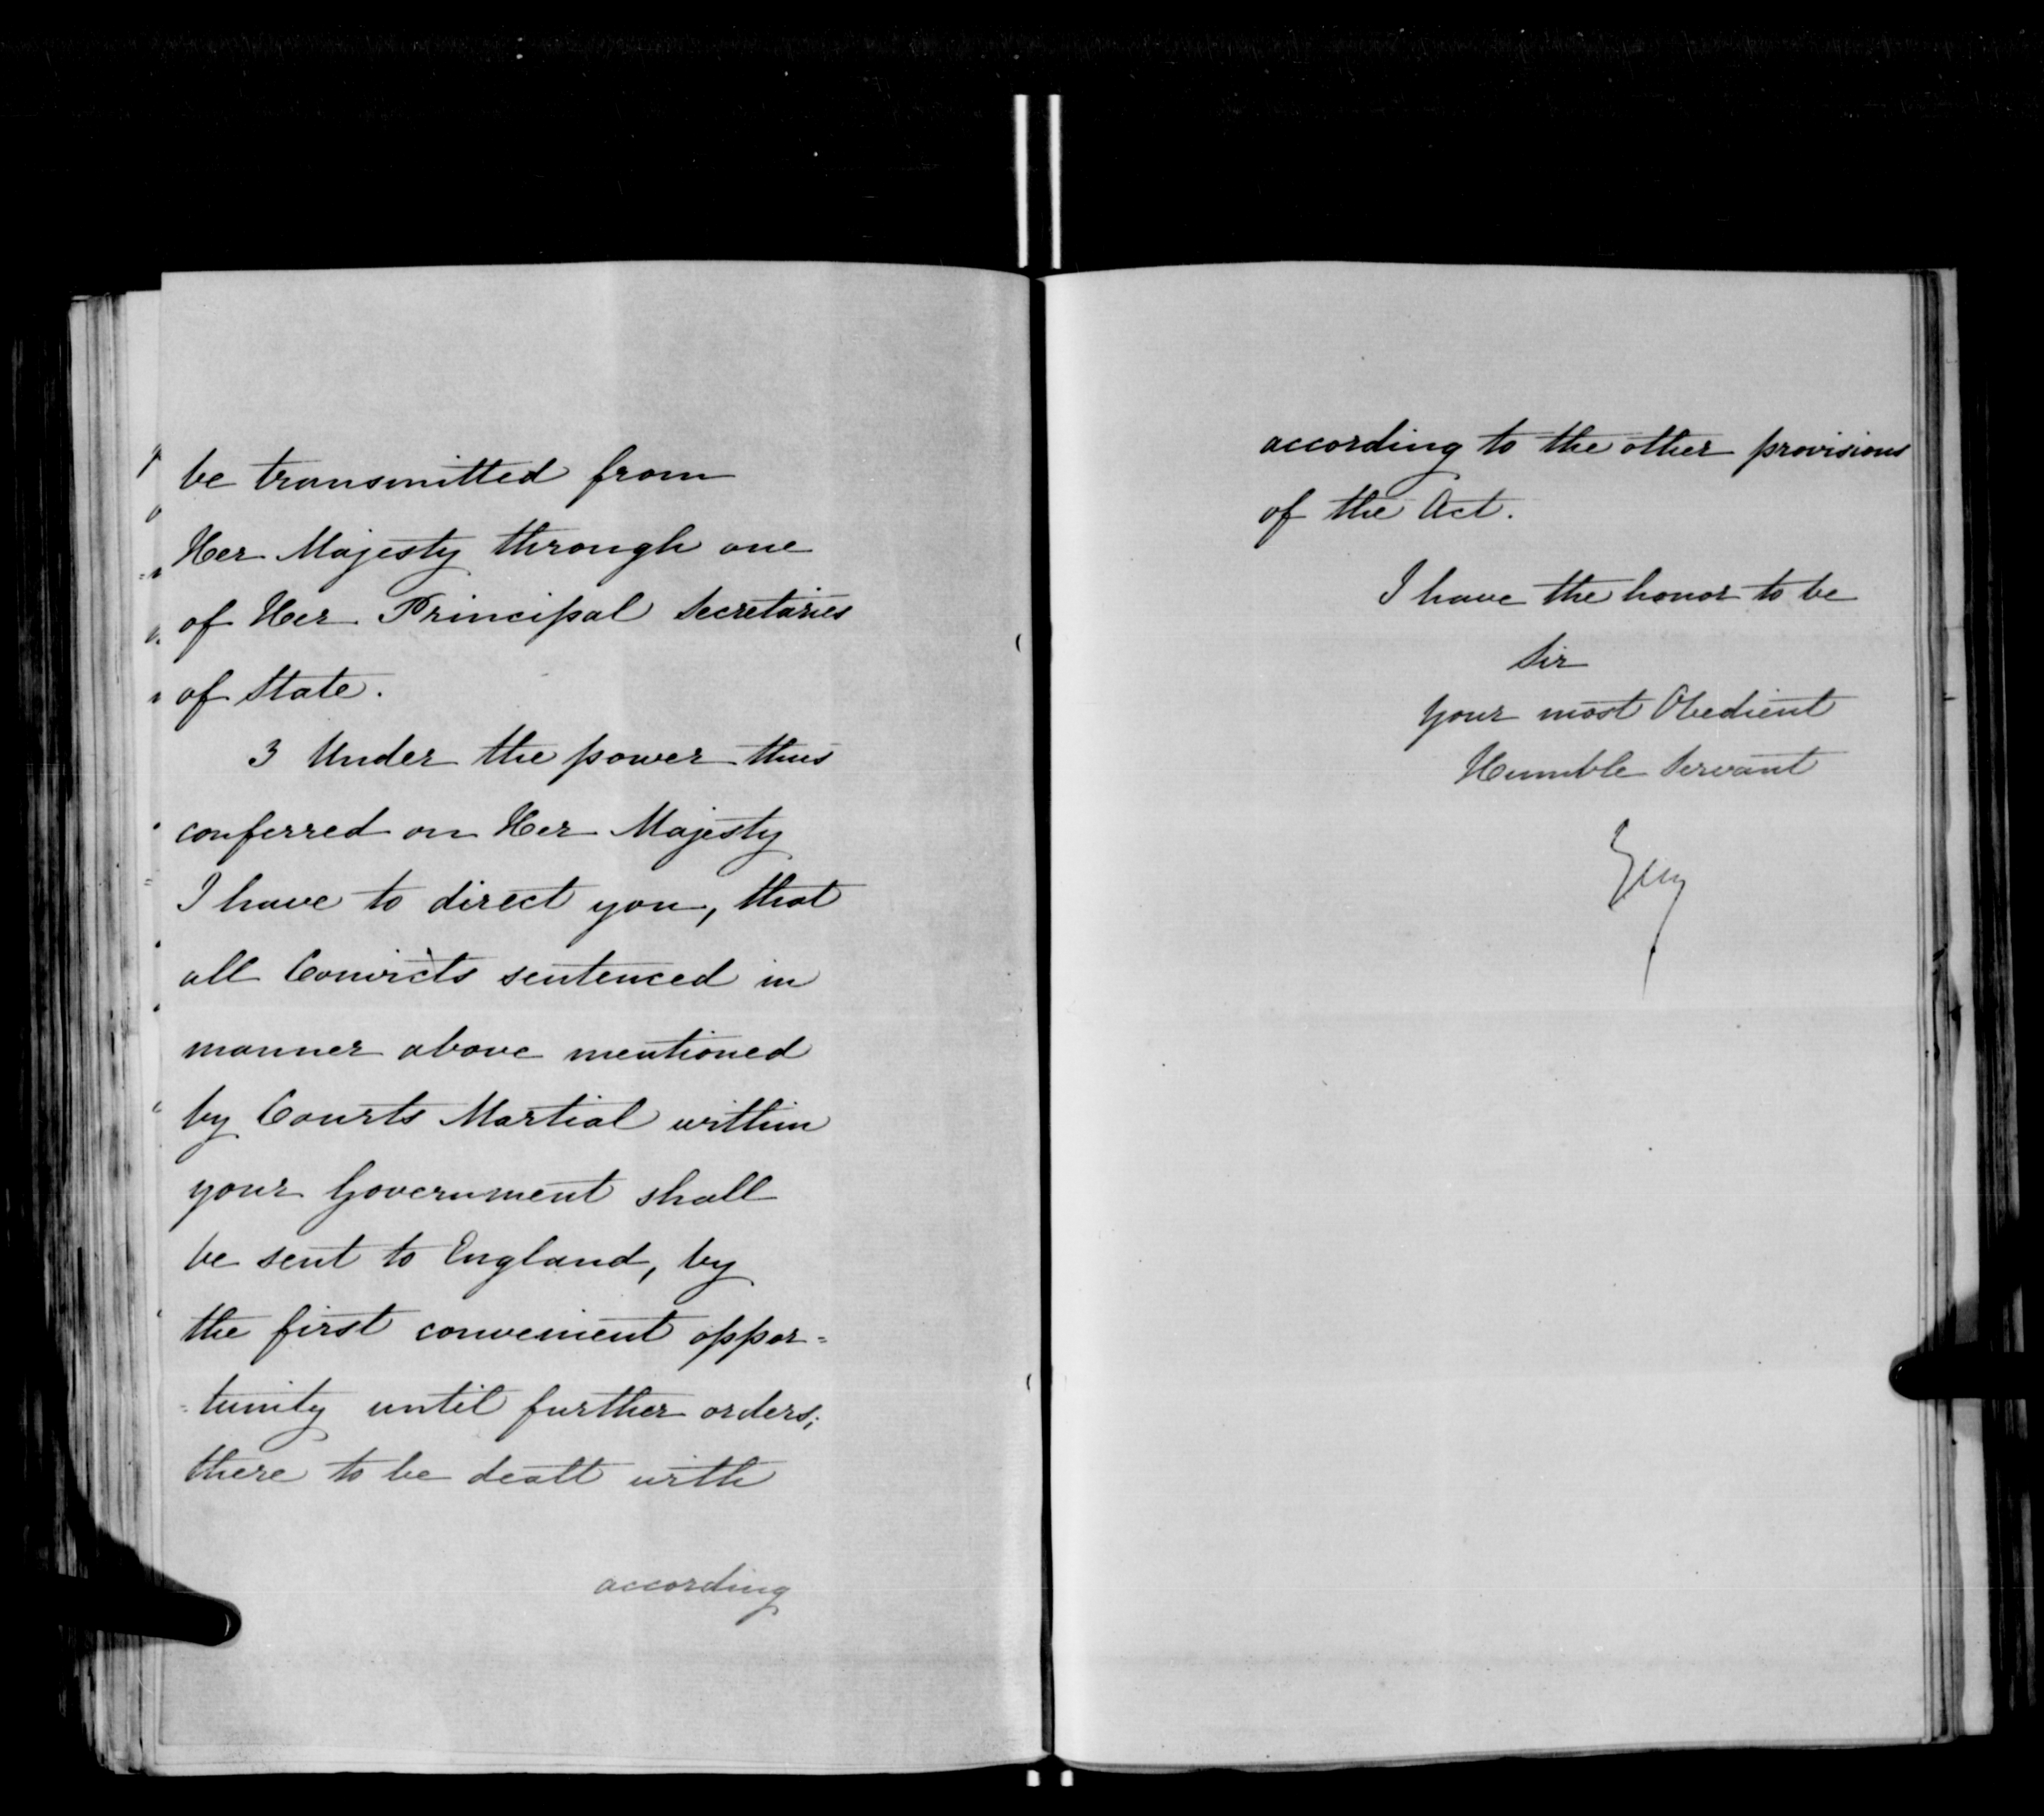 be transmitted from
Her Majesty through one
of Her Principal Secretaries
of State.
3 Under the power thus
conferred on Her Majesty
I have to direct you, that
all Convicts sentenced in
manner above mentioned
by Courts Martial within
your Government shall
be sent to England, by
the first convenient oppor=
=tunity until further orders;
there to be dealt with
according
according to the other provisions
of the Act.
I have the honor to be
Sir
Your most Obedient
Humble Servant